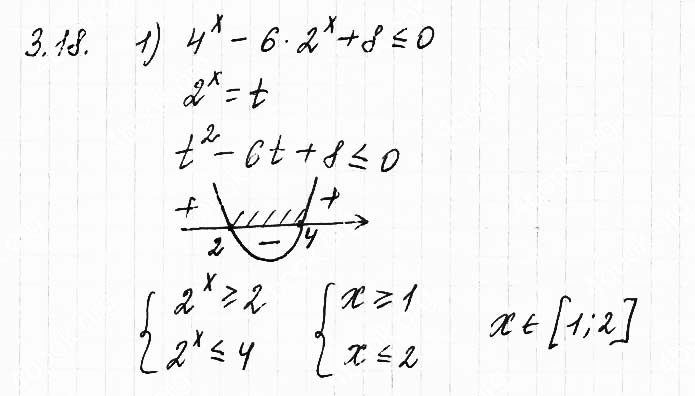 3.18. 1) 4^x - 6 · 2^x + 8 ≤ 0
2^x = t
t^2 - 6t + 8 ≤ 0
+ +
2 - 4
{ 2^x ≥ 2 { x ≥ 1
2^x ≤ 4 x ≤ 2 x ∈ [1; 2]